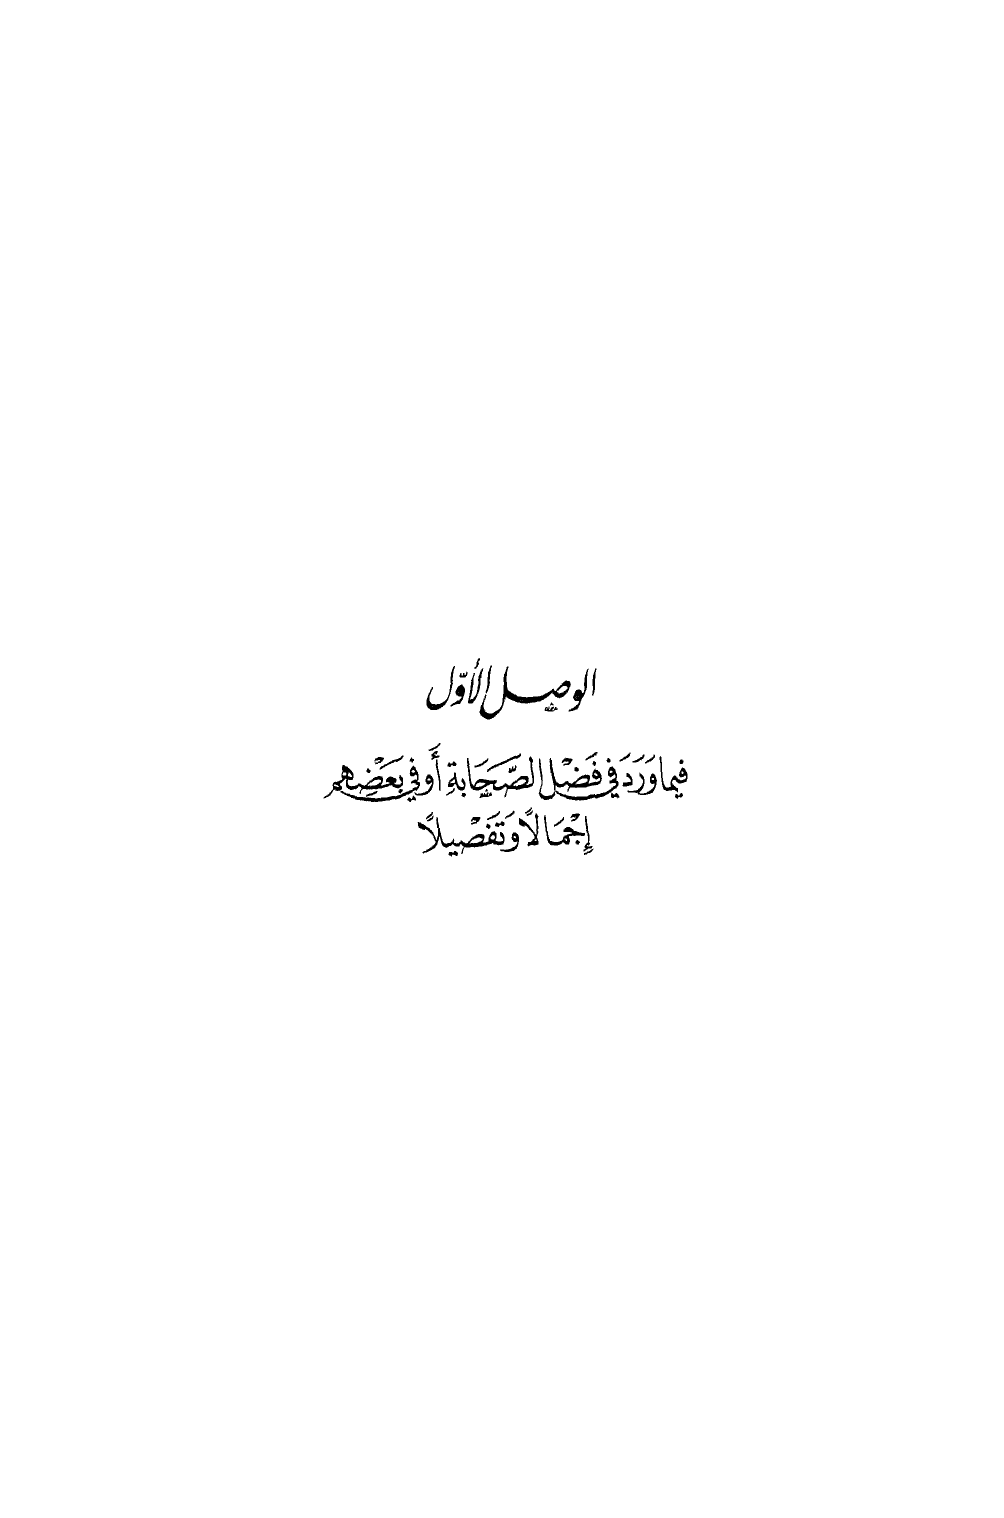 الوصل الأوّل
فيما وَرَدَ في فَضْل الصَّحَابةِ أَو في بَعْضِهم
إِجْمَالًا وَتَفْصِيلًا